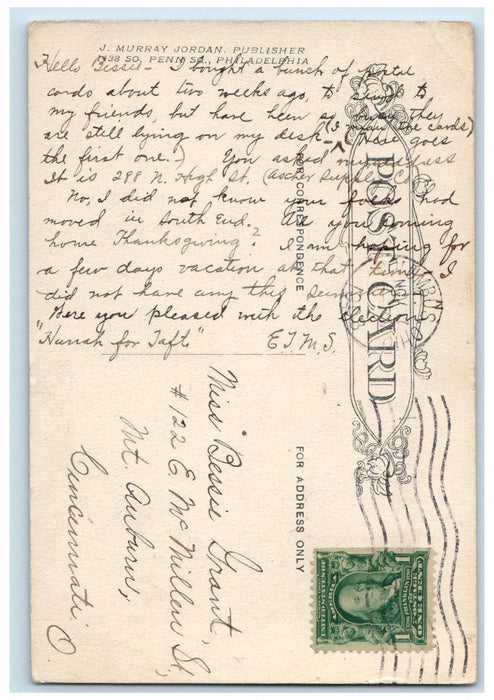 J. MURRAY JORDAN, PUBLISHER
1438 SO. PENN SQ., PHILADELPHIA
Hello Bessie - I bought a bunch of postal
cards about two weeks ago, to send to
my friends, but have been so busy they
are still lying on my desk - (I mean the cards)
the first one.) You asked my address
(Here goes
It is 288 N. High St. (Ascher Supply Co.)
No, I did not know your folks had
moved in South End. Are you coming
home Thanksgiving? I am hoping for
a few days vacation at that time. I
did not have any this summer.
Were you pleased with the election
"Hurrah for Taft" E.T.M.S.
POST CARD
FOR CORRESPONDENCE
FOR ADDRESS ONLY
Miss Bessie Grant,
#122 E McMillen St,
Mt. Auburn,
Cincinnati O
NOV
1
1
POSTAGE